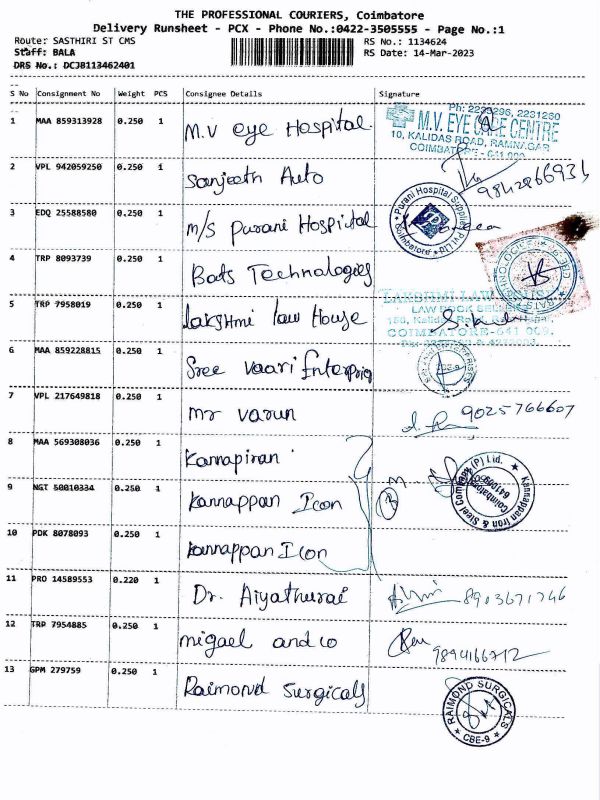 THE PROFESSIONAL COURIERS, Coimbatore
Delivery Runsheet - PCX - Phone No.:0422-3505555 - Page No.:1
Route: SASTHIRI ST CMS RS No.: 1134624
Staff: BALA RS Date: 14-Mar-2023
DRS No.: DCJB113462401
S No Consignment No Weight PCS Consignee Details Signature
1 MAA 859313928 0.250 1 M.V eye Hospital
Ph: 2231260
M.V. EYE CARE CENTRE
10, KALIDAS ROAD, RAMNAGAR
COIMBATORE - 641 009
2 VPL 942059250 0.250 1 Sanjeeth Auto
3 EDQ 25588580 0.250 1 M/s Purani Hospital
Purani Hospital Supplies Pvt Ltd
Coimbatore
4 TRP 8093739 0.250 1 Bats Technologies
5 TRP 7958019 0.250 1 Lakshmi law House
LAKSHMI LAW HOUSE
LAW BOOK SELLER
COIMBATORE-641 009.
6 MAA 859228815 0.250 1 Sree Vaari Enterpries
7 VPL 217649818 0.250 1 Mr Varun
9025766607
8 MAA 569308036 0.250 1 Kannapiran
9 NGT 50010334 0.250 1 Kannappan Icon
Kannappan Iron & Steel Company (P) Ltd.
Coimbatore
10 PDK 8078093 0.250 1 Kannappan Icon
11 PRO 14589553 0.220 1 Dr. Aiyathurai
8903671746
12 TRP 7954885 0.250 1 migael and co
9894166712
13 GPM 279759 0.250 1 Raimond Surgicals
RAIMOND SURGICALS
CBE-9